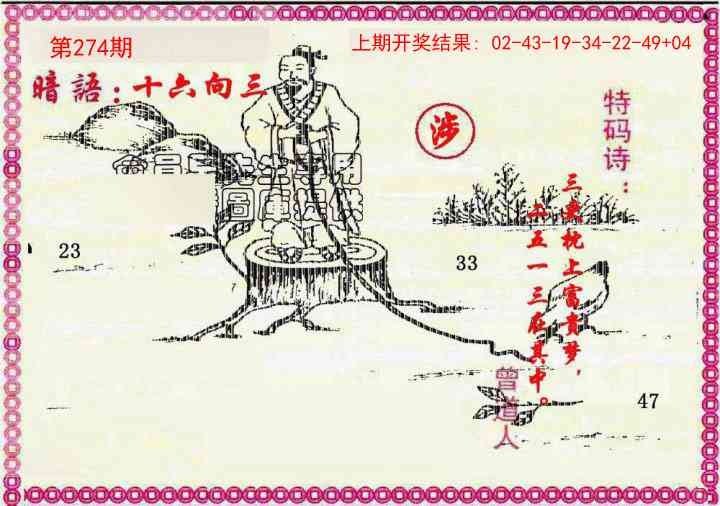 第274期
上期开奖结果: 02-43-19-34-22-49+04
暗語:十六向三
涉
特码诗:
三更枕上富貴梦,
二五一三在其中。
曾道人
23
33
47